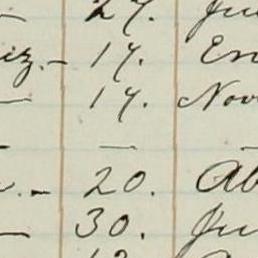 27. Ju
iz.- 17. En
— 17. Nov
—
.- 20. Ab
— 30. Ju